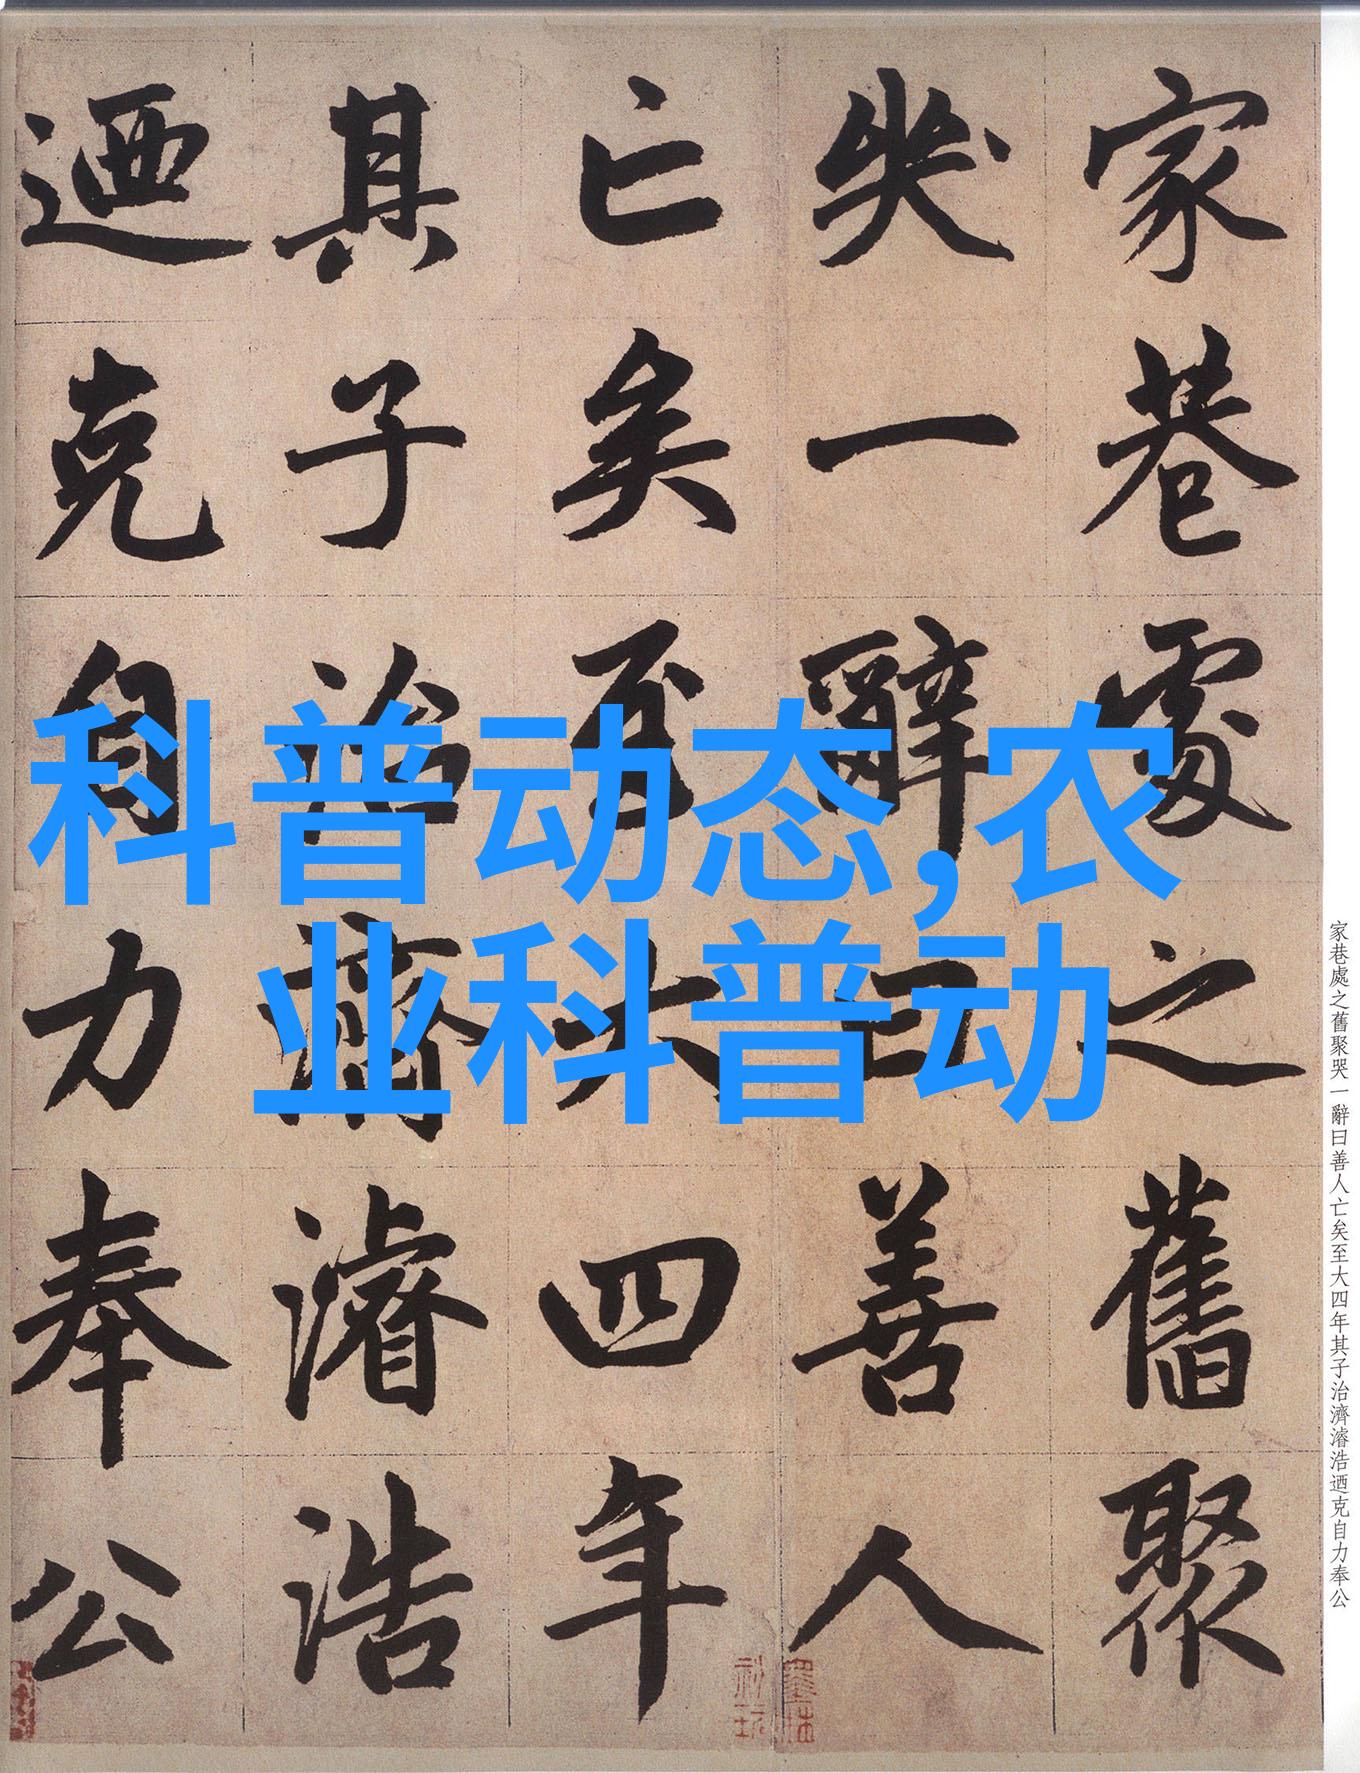 家巷處之舊聚
哭一辭曰善人
亡矣至大四年
其子治濟濬浩
迺克自力奉公
科普动态,农
业科普动
家巷處之舊聚哭一辭曰善人亡矣至大四年其子治濟濬浩迺克自力奉公